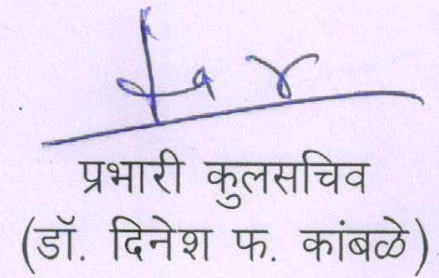 प्रभारी कुलसचिव
(डॉ. दिनेश फ. कांबळे)